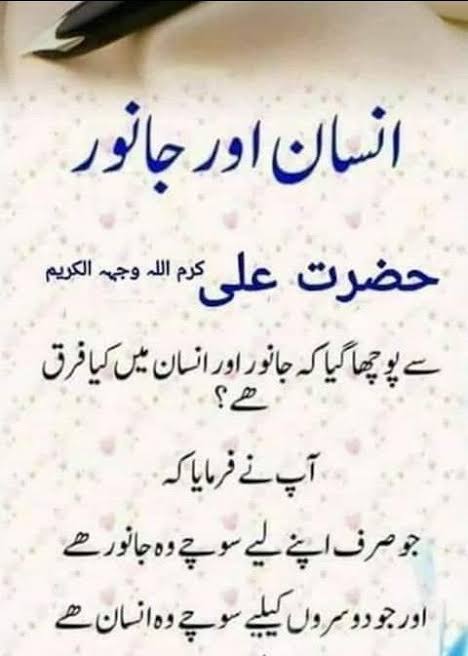 انسان اور جانور
حضرت علی کرم اللہ وجہہ الکریم
سے پوچھا گیا کہ جانور اور انسان میں کیا فرق
ھے؟
آپ نے فرمایا کہ
جو صرف اپنے لیے سوچے وہ جانور ھے
اور جو دوسروں کیلیے سوچے وہ انسان ھے